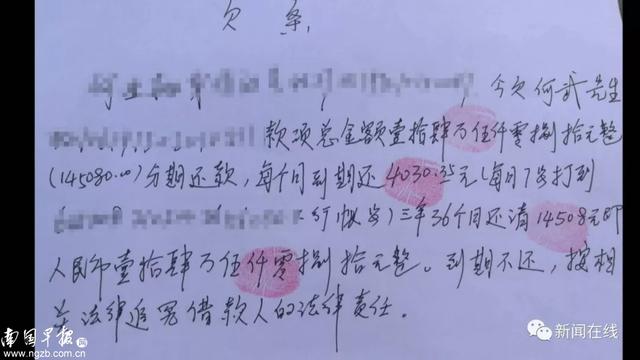 欠条
今欠何武先生
款项总金额壹拾肆万伍仟零捌拾元整
(145080.00)分期还款，每个月到期还4030.35元(每月7号打到
行帐号)三年36个月还清14508元即
人民币壹拾肆万伍仟零捌拾元整。到期不还，按相
关法律追究借款人的法律责任.
南国早报
www.ngzb.com.cn
新闻在线